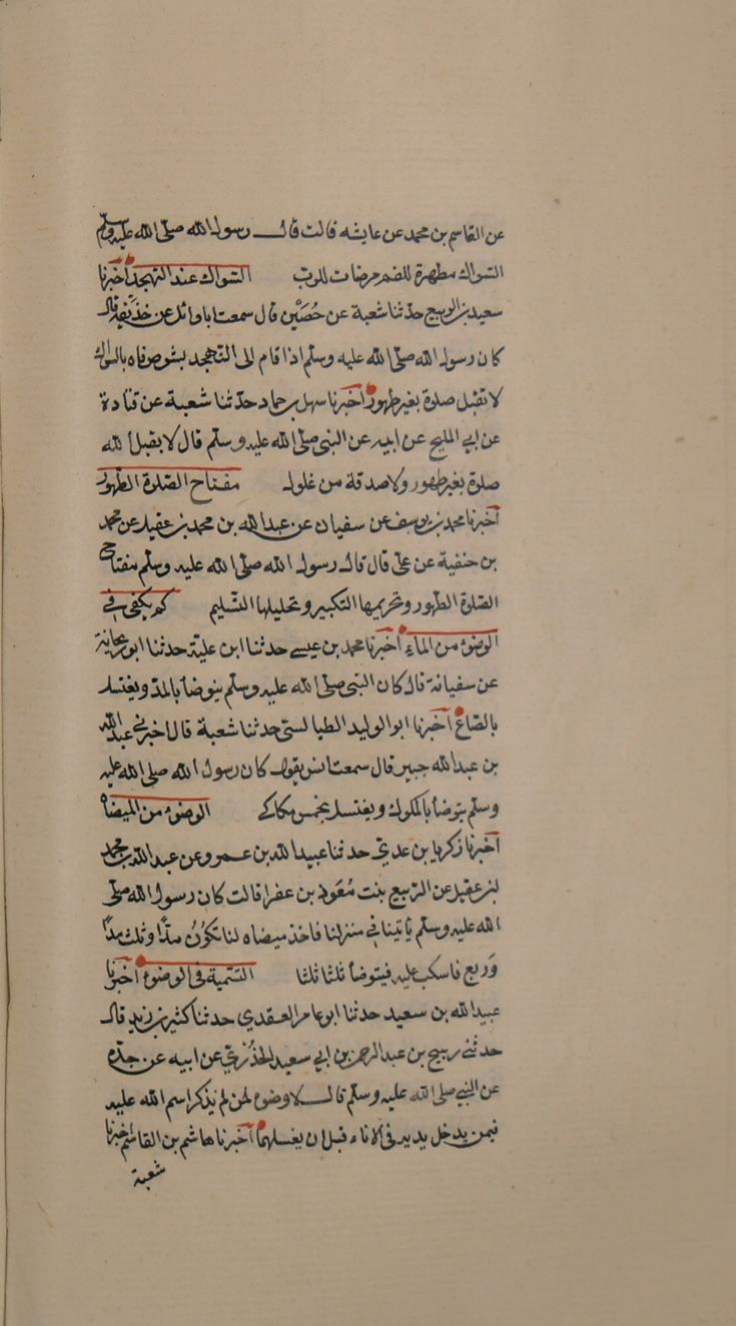 عن القاسم بن محمد عن عايشه قالت قال رسول الله صلى الله عليه وسلم
السواك مطهرة للفم مرضات للرب السواك عند التهجد اخبرنا
سعيد بن الربيع حدثنا شعبة عن حصين قال سمعت ابا وائل عن حذيفة قال
كان رسول الله صلى الله عليه وسلم اذا قام الى التهجد يشوص فاه بالسواك
لا تقبل صلوة بغير طهور اخبرنا سهل بن حماد حدثنا شعبة عن قتادة
عن ابي المليح عن ابيه عن النبي صلى الله عليه وسلم قال لا يقبل الله
صلوة بغير طهور ولا صدقة من غلول مفتاح الصلوة الطهور
اخبرنا محمد بن يوسف عن سفيان عن عبد الله بن محمد بن عقيل عن محمد
بن حنفية عن علي قال قال رسول الله صلى الله عليه وسلم مفتاح
الصلوة الطهور وتحريمها التكبير وتحليلها التسليم كم يكفي في
الوضوء من الماء اخبرنا محمد بن عيسى حدثنا ابن علية حدثنا ابو ريحانة
عن سفيانة قال كان النبي صلى الله عليه وسلم يتوضأ بالمد ويغتسل
بالصاع اخبرنا ابو الوليد الطيالسي حدثنا شعبة قال اخبرني عبد الله
بن عبد الله جبير قال سمعت انس يقول كان رسول الله صلى الله عليه
وسلم يتوضأ بالمكوك ويغتسل بخمس مكاكي الوضوء من الميضاه
اخبرنا زكريا بن عدي حدثنا عبيد الله بن عمرو عن عبد الله بن محمد
بن عقيل عن الربيع بنت معوذ بن عفرا قالت كان رسول الله صلى
الله عليه وسلم ياتينا في منزلنا فاخذ ميضاه لنا تكون مدا وثلث مدا
وربع فاسكب عليه فيتوضأ ثلثا ثلثا التسمية في الوضوء اخبرنا
عبيد الله بن سعيد حدثنا ابو عامر العقدي حدثنا كثير بن زيد قال
حدثني ربيح بن عبد الرحمن بن ابي سعيد الخدري عن ابيه عن جده
عن النبي صلى الله عليه وسلم قال لا وضوء لمن لم يذكر اسم الله عليه
فيمن يدخل يديه في الاناء قبل ان يغسلهما اخبرنا هاشم بن القاسم اخبرنا
شعبة